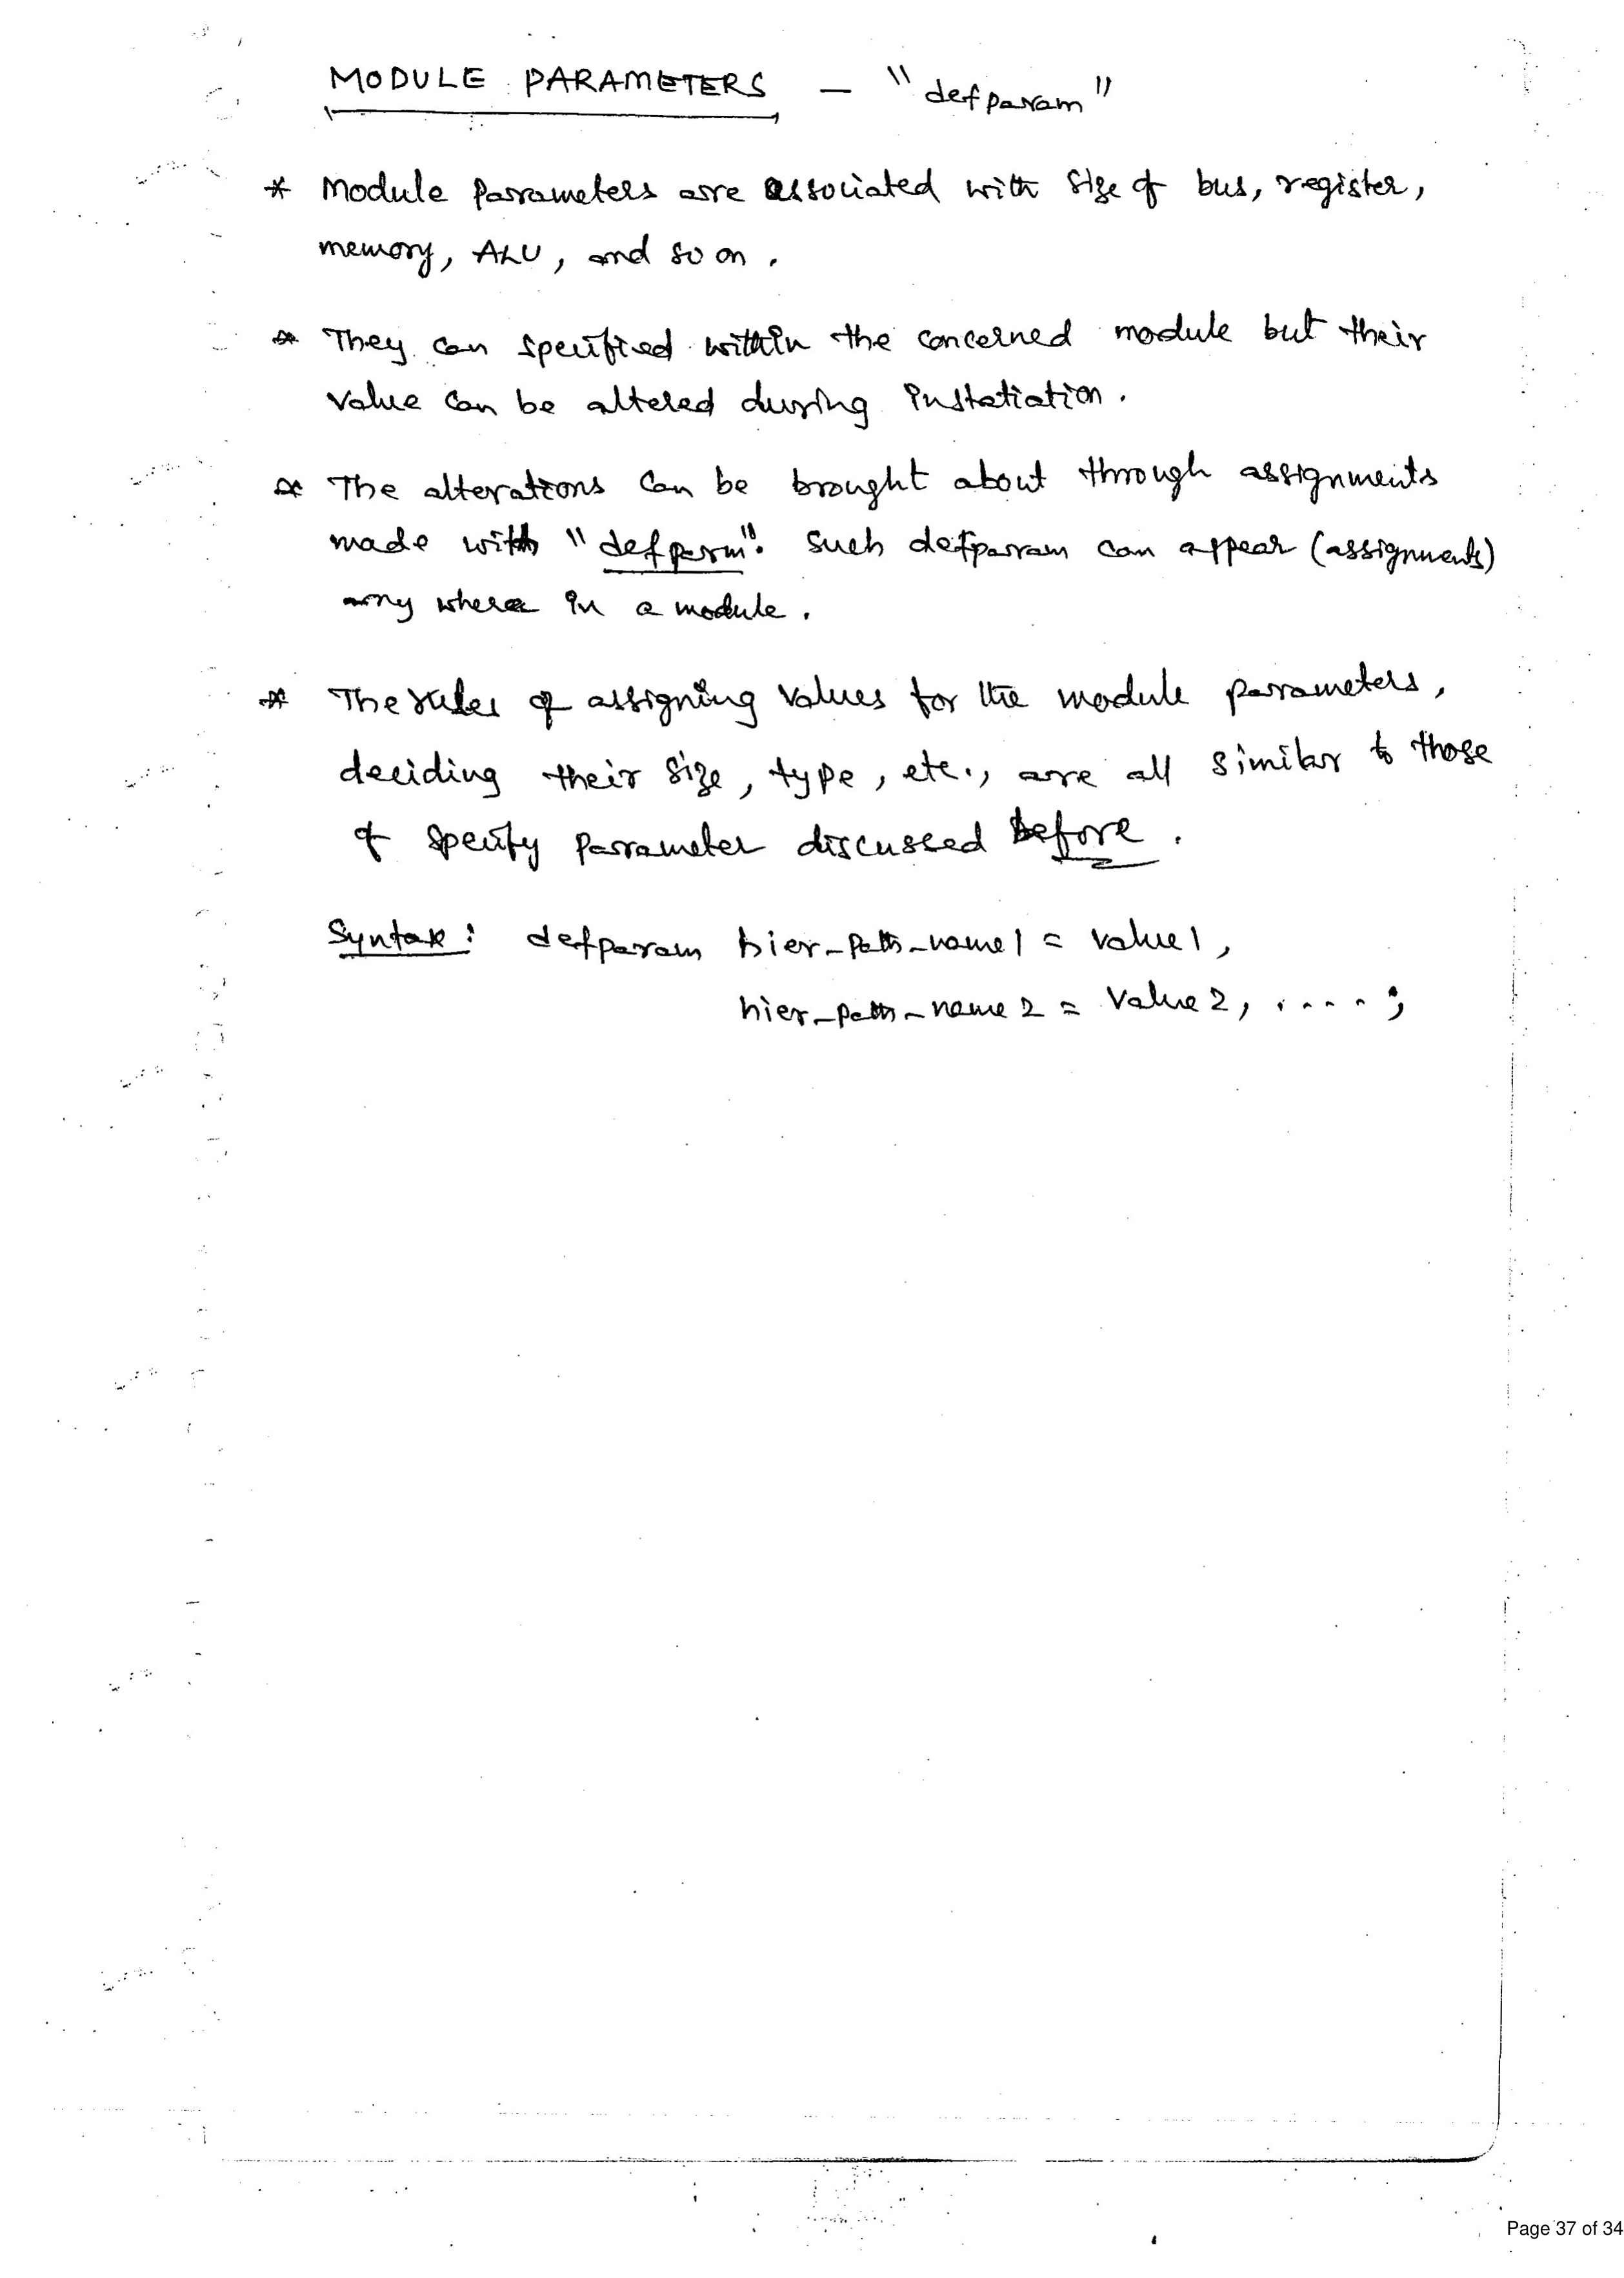 MODULE PARAMETERS — "defparam"
* Module Parameters are associated with size of bus, register,
memory, ALU, and so on.
* They can specified within the concerned module but their
value can be altered during instatiation.
* The alterations can be brought about through assignments
made with "defparm". Such defparam can appear (assignments)
any where in a module.
* The rules of assigning values for the module parameters,
deciding their size, type, etc., are all similar to those
of specify parameter discussed before.
Syntax: defparam hier_path_name1 = value1,
hier_path_name2 = value2, ....;
Page 37 of 34